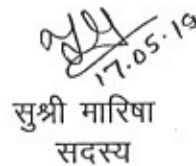 17.05.19
सुश्री मारिषा
सदस्य